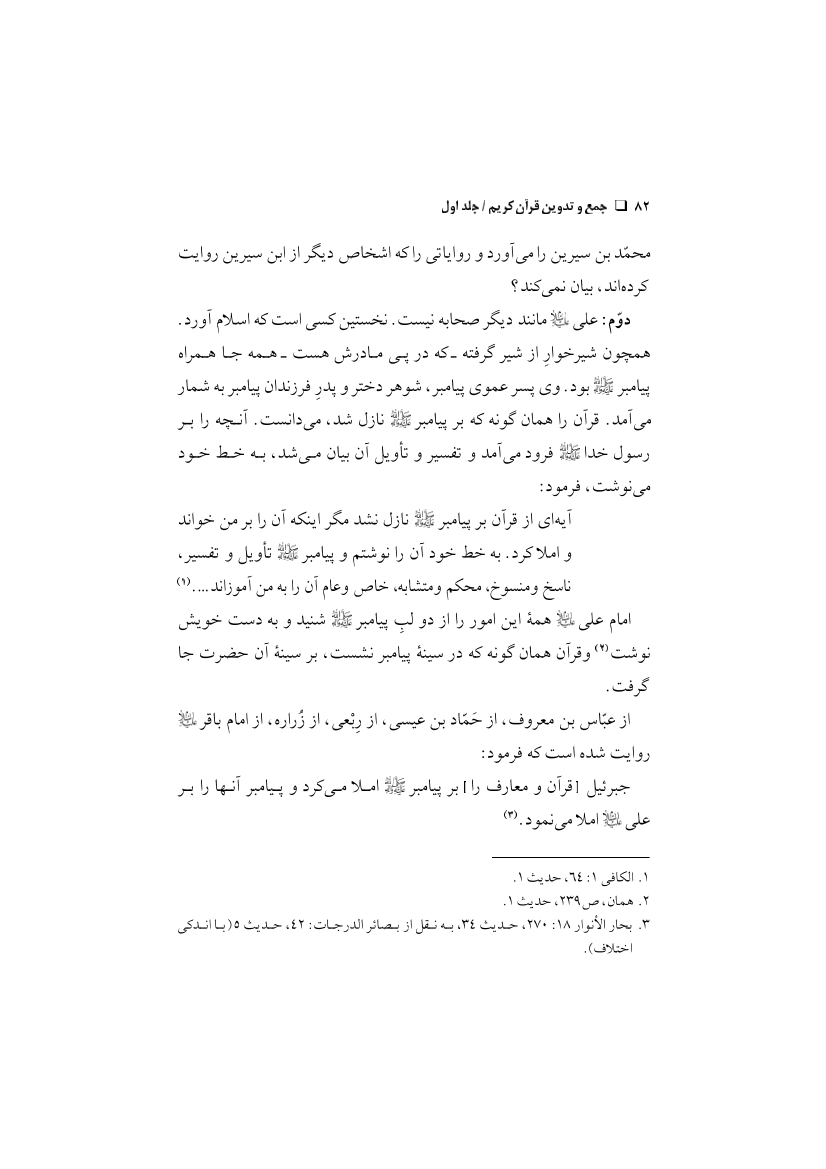 ۸۲ ❑ جمع و تدوین قرآن کریم / جلد اول
محمّد بن سیرین را می‌آورد و روایاتی را که اشخاص دیگر از ابن سیرین روایت
کرده‌اند، بیان نمی‌کند؟
دوّم: علی علیه‌السلام مانند دیگر صحابه نیست. نخستین کسی است که اسلام آورد.
همچون شیرخوارِ از شیر گرفته ـ که در پـی مـادرش هست ـ هـمه جـا هـمراه
پیامبر ﷺ بود. وی پسر عموی پیامبر، شوهر دختر و پدرِ فرزندان پیامبر به شمار
می‌آمد. قرآن را همان گونه که بر پیامبر ﷺ نازل شد، می‌دانست. آنـچه را بـر
رسول خدا ﷺ فرود می‌آمد و تفسیر و تأویل آن بیان مـی‌شد، بـه خـط خـود
می‌نوشت، فرمود:
آیه‌ای از قرآن بر پیامبر ﷺ نازل نشد مگر اینکه آن را بر من خواند
و املا کرد. به خط خود آن را نوشتم و پیامبر ﷺ تأویل و تفسیر،
ناسخ ومنسوخ، محکم ومتشابه، خاص وعام آن را به من آموزاند....(۱)
امام علی علیه‌السلام همۀ این امور را از دو لبِ پیامبر ﷺ شنید و به دست خویش
نوشت(۲) وقرآن همان گونه که در سینۀ پیامبر نشست، بر سینۀ آن حضرت جا
گرفت.
از عبّاس بن معروف، از حَمّاد بن عیسی، از رِبْعی، از زُراره، از امام باقر علیه‌السلام
روایت شده است که فرمود:
جبرئیل [قرآن و معارف را] بر پیامبر ﷺ امـلا مـی‌کرد و پـیامبر آنـها را بـر
علی علیه‌السلام املا می‌نمود.(۳)
۱. الکافی ۱: ٦٤، حدیث ۱.
۲. همان، ص ۲۳۹، حدیث ۱.
۳. بحار الأنوار ۱۸: ۲۷۰، حـدیث ۳٤، بـه نـقل از بـصائر الدرجـات: ٤۲، حـدیث ٥ (بـا انـدکی
اختلاف).